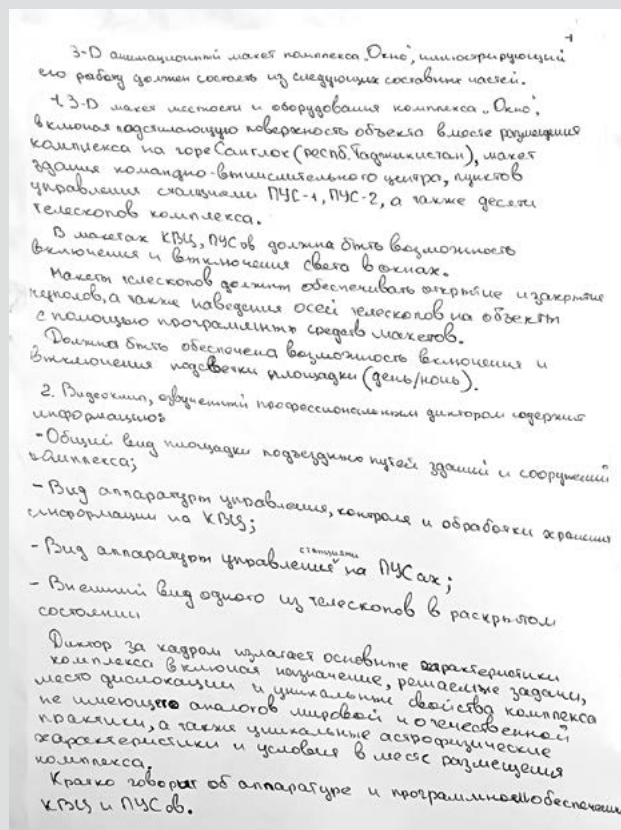 -1
3-D анимационный макет комплекса „Окно", иллюстрирующий
его работу должен состоять из следующих составных частей.
1. 3-D макет местности и оборудования комплекса „Окно",
включая подстилающую поверхность объекта в месте размещения
комплекса на горе Санглок (респб. Таджикистан), макет
здания командно-вычислительного центра, пунктов
управления станциями ПУС-1, ПУС-2, а также десяти
телескопов комплекса.
В макетах КВЦ, ПУСов должна быть возможность
включения и выключения света в окнах.
Макеты телескопов должны обеспечивать открытие и закрытие
куполов, а также наведения осей телескопов на объекты
с помощью программных средств макетов.
Должна быть обеспечена возможность включения и
выключения подсветки площадки (день/ночь).
2. Видеоклип, озвученный профессиональным диктором содержит
информацию:
- Общий вид площадки подъездных путей зданий и сооружений
комплекса;
- Вид аппаратуры управления, контроля и обработки хранения
информации на КВЦ;
- Вид аппаратуры управления станциями на ПУСах;
- Внешний вид одного из телескопов в раскрытом
состоянии
Диктор за кадром излагает основные характеристики
комплекса включая назначение, решаемые задачи,
место дислокации и уникальные свойства комплекса
не имеющего аналогов мировой и отечественной
практики, а также уникальные астрофизические
характеристики и условия в месте размещения
комплекса.
Кратко говорят об аппаратуре и программном обеспечении
КВЦ и ПУСов.